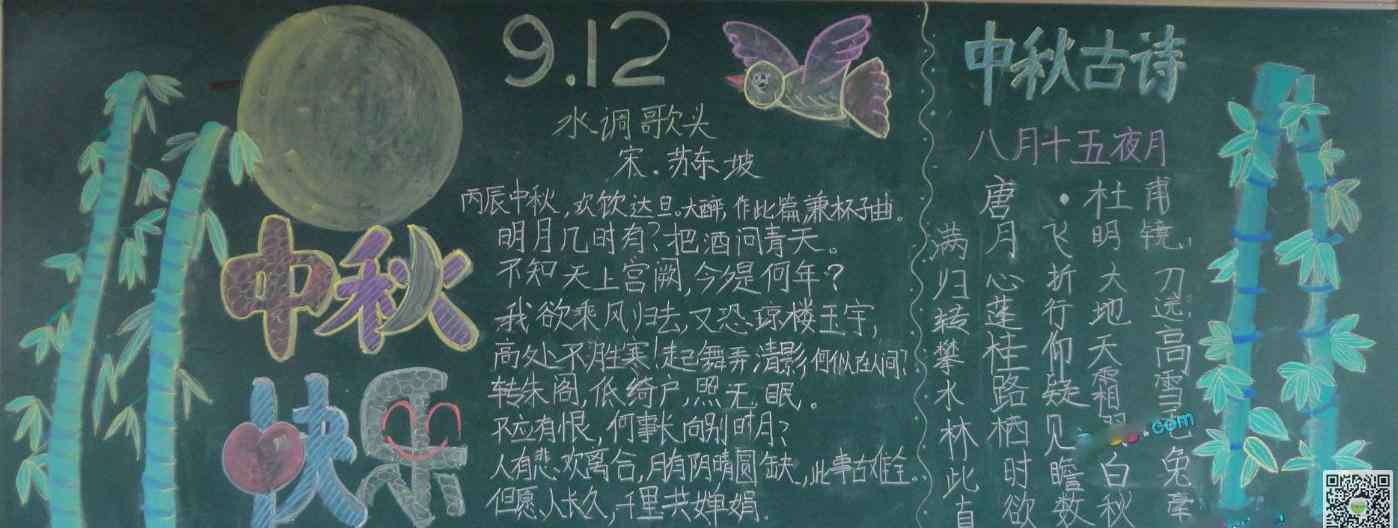 9.12
水调歌头
宋.苏东坡
丙辰中秋,欢饮达旦。大醉,作此篇兼怀子由。
明月几时有?把酒问青天。
不知天上宫阙,今夕是何年?
我欲乘风归去,又恐琼楼玉宇,
高处不胜寒!起舞弄清影何似在人间?
转朱阁,低绮户,照无眠。
不应有恨,何事长向别时月?
人有悲欢离合,月有阴晴圆缺,此事古难全.
但愿人长久,千里共婵娟.
中秋
快乐
中秋古诗
八月十五夜月
唐·杜甫
满月飞明镜,
归心折大刀
转蓬行地远,
攀桂仰天高
水路疑霜雪
林栖见毛
此时瞻白兔
直欲数秋毫
.com